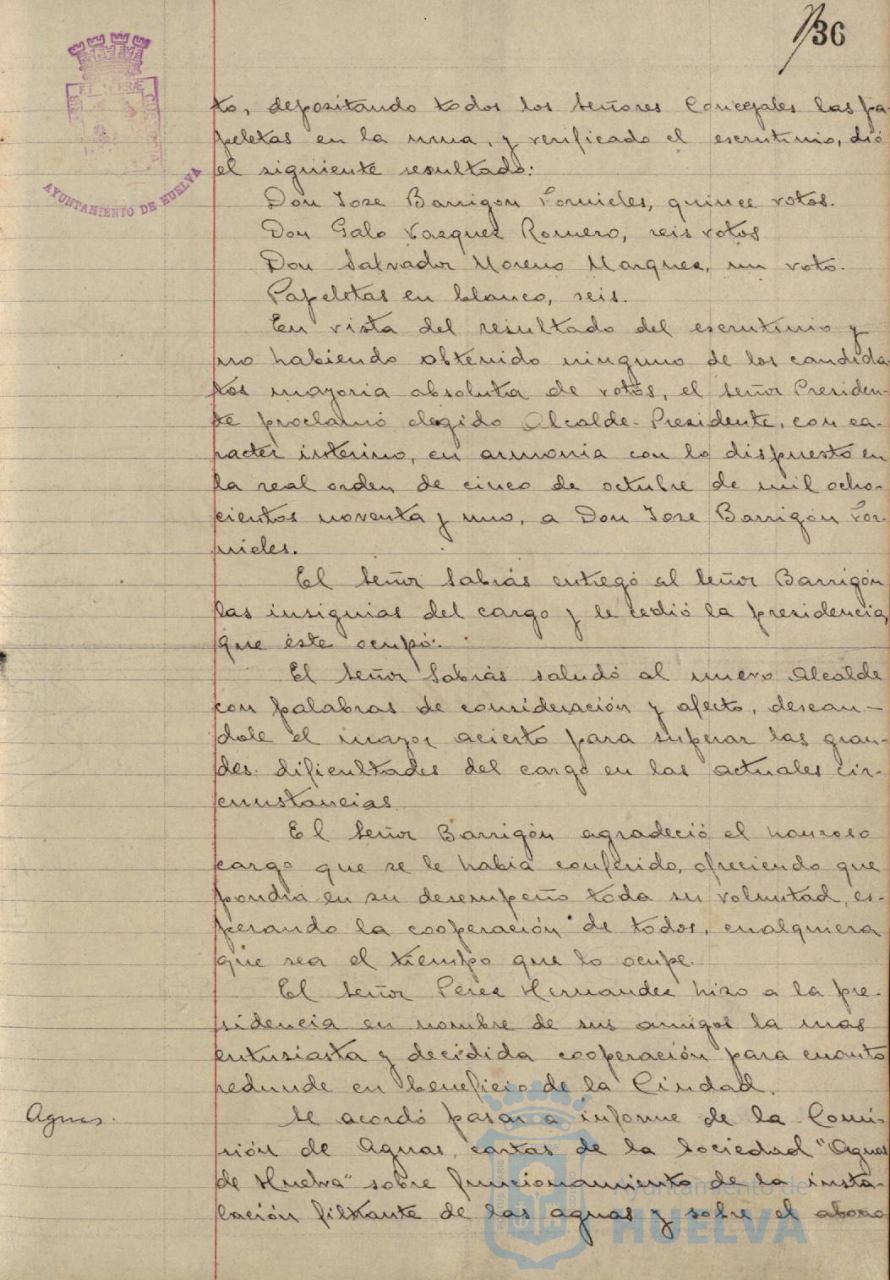 136
AYUNTAMIENTO DE HUELVA
to, depositando todos los señores Concejales las pa-
peletas en la urna, y verificado el escrutinio, dió
el siguiente resultado:
Don Jose Barrigón Fornieles, quince votos.
Don Galo Vazquez Romero, seis votos
Don Salvador Moreno Marquez, un voto.
Papeletas en blanco, seis.
En vista del resultado del escrutinio y
no habiendo obtenido ninguno de los candida-
tos mayoria absoluta de votos, el señor Presiden-
te proclamó elegido Alcalde-Presidente, con ca-
racter interino, en armonia con lo dispuesto en
la real orden de cinco de octubre de mil ocho-
cientos noventa y uno, a Don Jose Barrigón For-
nieles.
El señor Sabrás entregó al señor Barrigón
las insignias del cargo y le cedió la presidencia,
que éste ocupó.
El señor Sabrás saludó al nuevo Alcalde
con palabras de consideración y afecto, desean-
dole el mayor acierto para superar las gran-
des dificultades del cargo en las actuales cir-
cunstancias.
El señor Barrigón agradeció el honroso
cargo que se le habia conferido, ofreciendo que
pondra en su desempeño toda su voluntad, es-
perando la cooperación de todos, cualquiera
que sea el tiempo que lo ocupe.
El señor Perez Hernandez hizo a la pre-
sidencia en nombre de sus amigos la mas
entusiasta y decidida cooperación para cuanto
redunde en beneficio de la Ciudad.
Aguas.
Se acordó pasar a informe de la Comi-
sión de Aguas, cartas de la Sociedad "Aguas
de Huelva" sobre funcionamiento de la insta-
lación filtrante de las aguas y sobre el abono
Ayuntamiento de
HUELVA